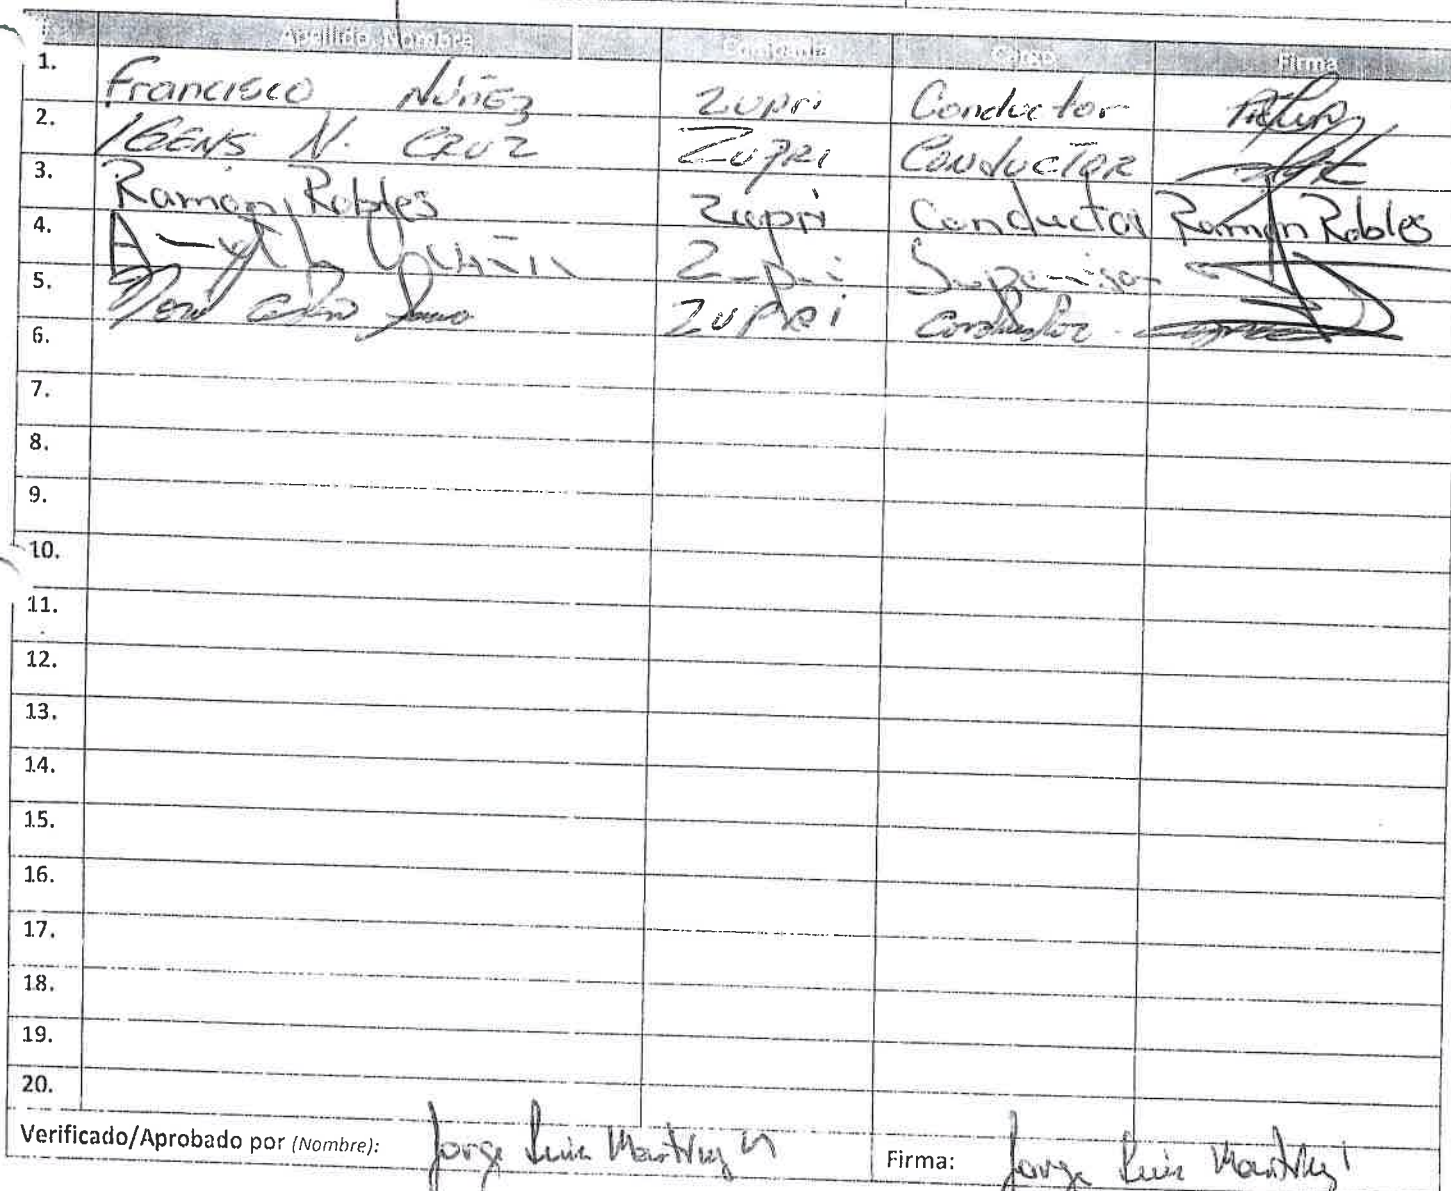 Apellido, Nombre Compañía Cargo Firma
1. Francisco Núñez Zupri Conductor
2. N. CRUZ Zupri CONDUCTOR
3. Ramón Robles Zupri Conductor Ramón Robles
4. Zupri Supervisor
5. Zupri Conductor
6.
7.
8.
9.
10.
11.
12.
13.
14.
15.
16.
17.
18.
19.
20.
Verificado/Aprobado por (Nombre): Jorge Luis Martínez Firma: Jorge Luis Martínez